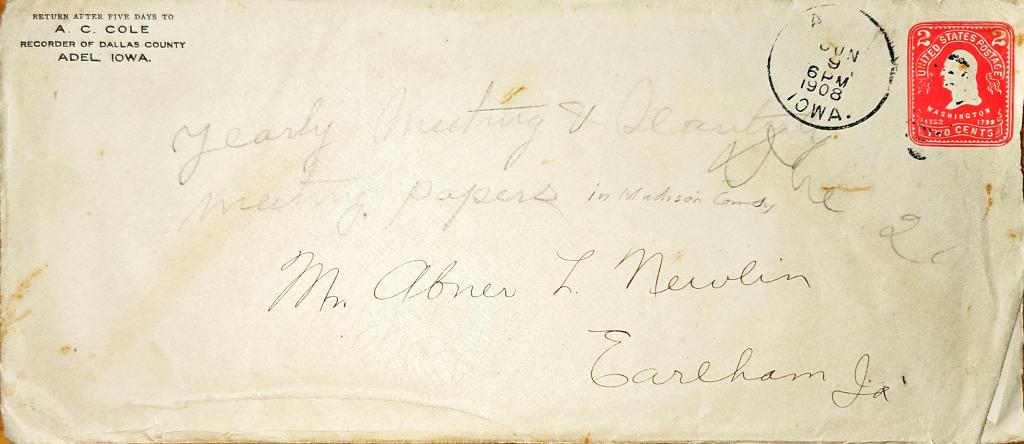 RETURN AFTER FIVE DAYS TO
A. C. COLE
RECORDER OF DALLAS COUNTY
ADEL, IOWA.
JUN
9
6 PM
1908
IOWA.
2 2
UNITED STATES POSTAGE
WASHINGTON
1732 1799
TWO CENTS
Yearly Meeting &
meeting papers in Madison County
2
Mr. Abner L. Newlin
Earlham Ia